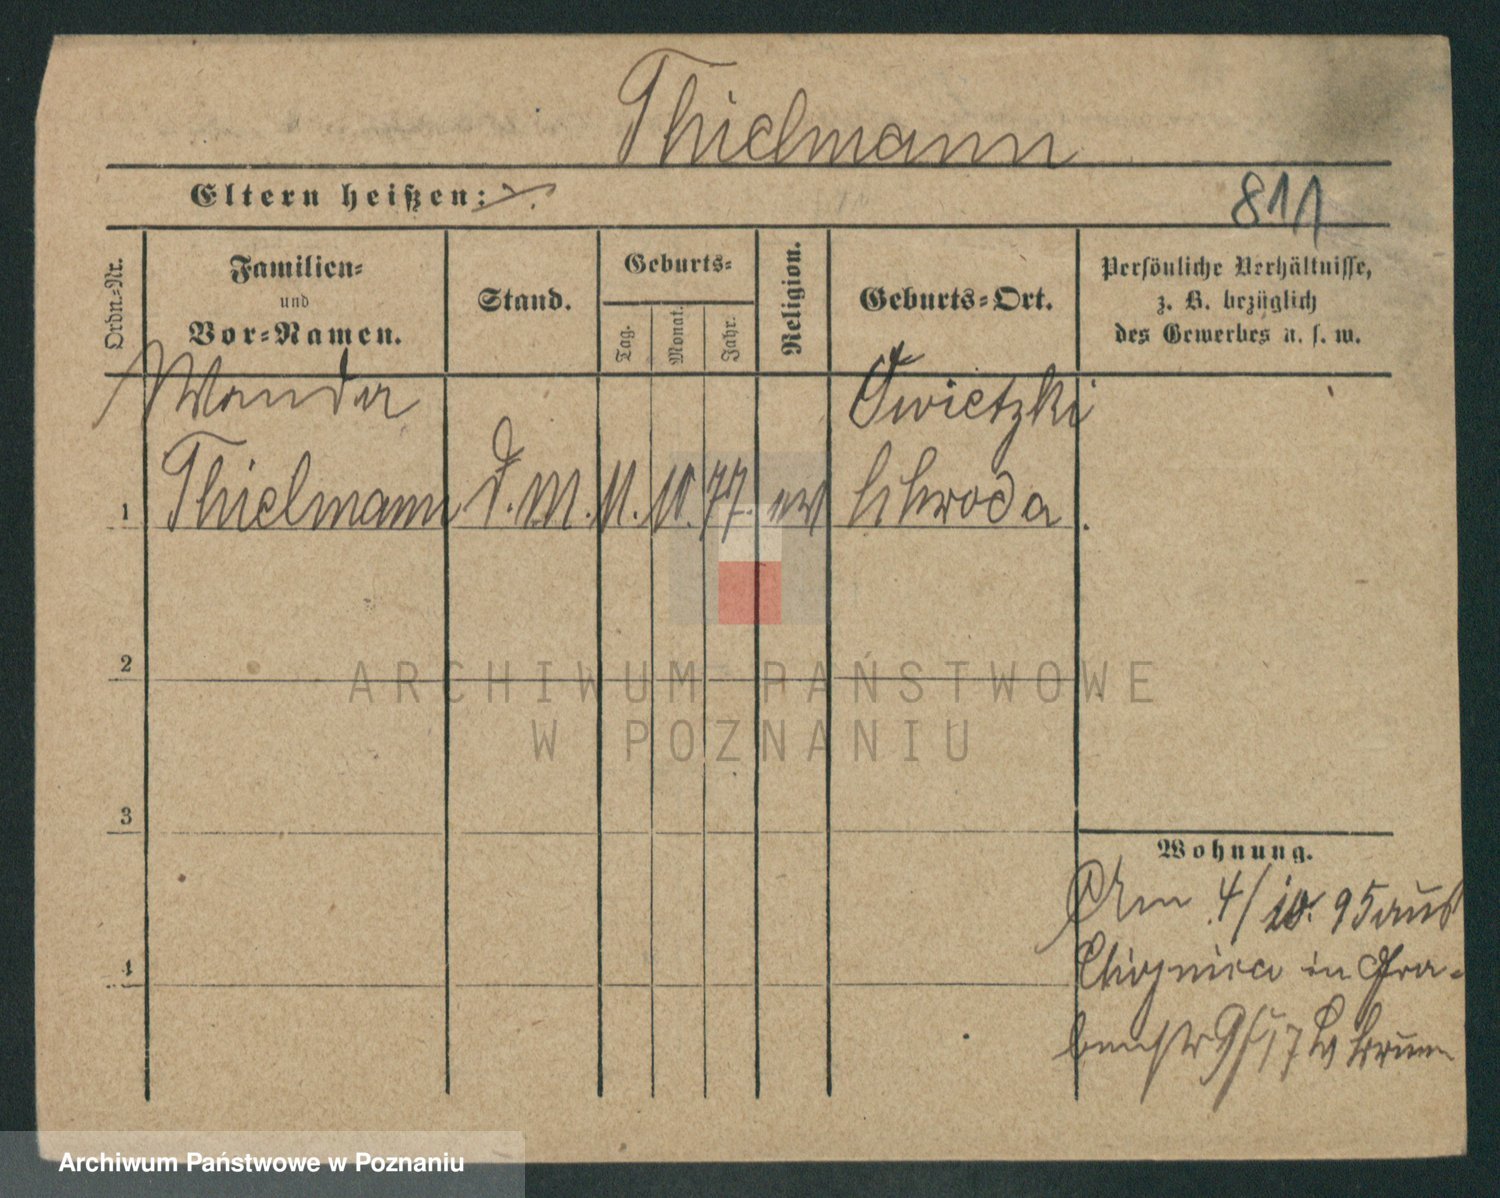 Thielmann
Eltern heißen:
811
Ordn.-Nr.
Familien-
und
Vor-Namen.
Stand.
Geburts-
Tag.
Monat.
Jahr.
Religion.
Geburts-Ort.
Persönliche Verhältnisse,
z. B. bezüglich
des Gewerbes u. s. w.
Wanda
Thielmann
D. M.
11.
10.
77.
ev
Schroda
1
2
3
4
Wohnung.
Am 4/10. 95 aus
in Gra-
benstr 9/17
ARCHIWUM PAŃSTWOWE
W POZNANIU
Archiwum Państwowe w Poznaniu